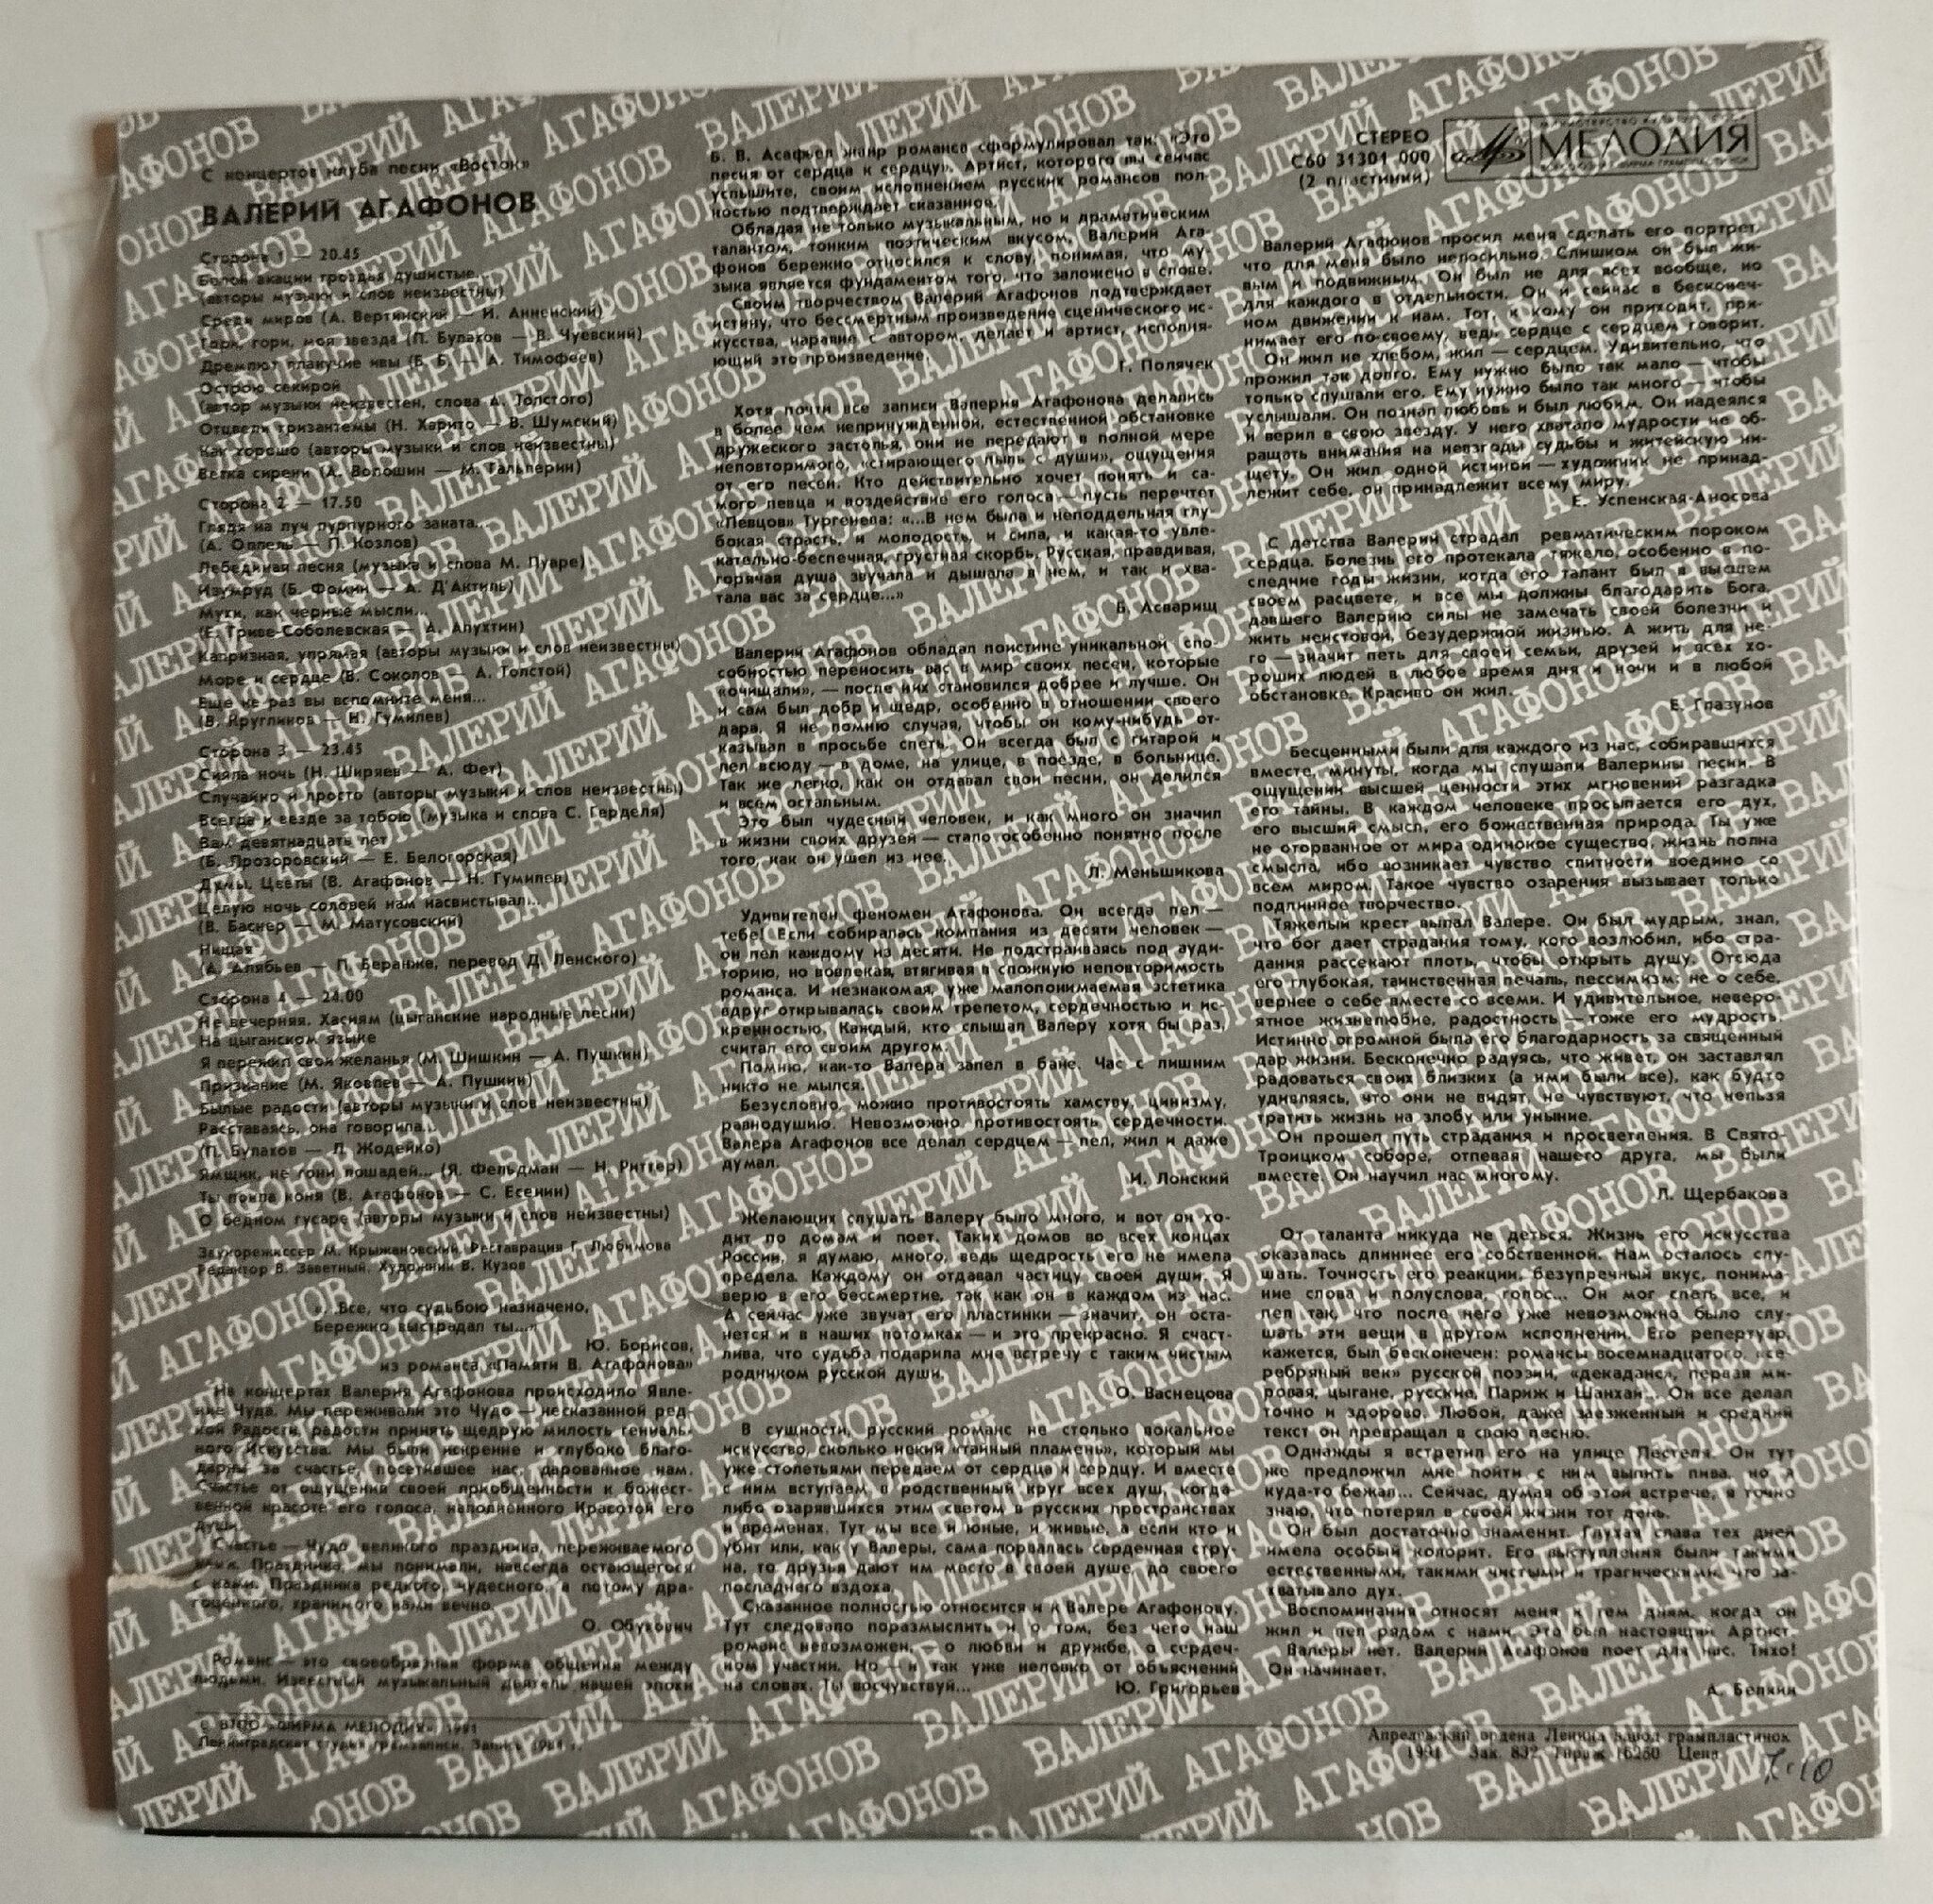 С концертов клуба песни «Восток»
ВАЛЕРИЙ АГАФОНОВ
Сторона 1 — 20.45
Белой акации гроздья душистые...
(авторы музыки и слов неизвестны)
Среди миров (А. Вертинский — И. Анненский)
Гори, гори, моя звезда (П. Булахов — В. Чуевский)
Дремлют плакучие ивы (Б. Б. — А. Тимофеев)
Острою секирой
(автор музыки неизвестен, слова А. Толстого)
Отцвели хризантемы (Н. Харито — В. Шумский)
Как хорошо (авторы музыки и слов неизвестны)
Ветка сирени (А. Волошин — М. Гальперин)
Сторона 2 — 17.50
Глядя на луч пурпурного заката...
(А. Оппель — П. Козлов)
Лебединая песня (музыка и слова М. Пуаре)
Изумруд (Б. Фомин — А. Д'Актиль)
Мухи, как черные мысли...
(Е. Гриве-Соболевская — А. Апухтин)
Капризная, упрямая (авторы музыки и слов неизвестны)
Море и сердце (В. Соколов — А. Толстой)
Еще не раз вы вспомните меня...
(В. Кругликов — Н. Гумилев)
Сторона 3 — 23.45
Сияла ночь (Н. Ширяев — А. Фет)
Случайно и просто (авторы музыки и слов неизвестны)
Всегда и везде за тобою (музыка и слова С. Герделя)
Вам девятнадцать лет
(Б. Прозоровский — Е. Белогорская)
Думы. Цветы (В. Агафонов — Н. Гумилев)
Целую ночь соловей нам насвистывал...
(В. Баснер — М. Матусовский)
Нищая
(А. Алябьев — П. Беранже, перевод Д. Ленского)
Сторона 4 — 24.00
Не вечерняя. Хасиям (цыганские народные песни)
На цыганском языке
Я пережил свои желанья (М. Шишкин — А. Пушкин)
Признание (М. Яковлев — А. Пушкин)
Былые радости (авторы музыки и слов неизвестны)
Расставаясь, она говорила...
(П. Булахов — Л. Жодейко)
Ямщик, не гони лошадей... (Я. Фельдман — Н. Риттер)
Ты поила коня (В. Агафонов — С. Есенин)
О бедном гусаре (авторы музыки и слов неизвестны)
Звукорежиссер М. Крыжановский. Реставрация Г. Любимова
Редактор В. Заветный. Художник В. Кузов
«...Все, что судьбою назначено,
Бережно выстрадал ты...»
Ю. Борисов,
из романса «Памяти В. Агафонова»
На концертах Валерия Агафонова происходило Явле-
ние Чуда. Мы переживали это Чудо — несказанной ред-
кой Радости, радости принять щедрую милость гениаль-
ного Искусства. Мы были искренне и глубоко благо-
дарны за счастье, посетившее нас, дарованное нам.
Счастье от ощущения своей приобщенности к божест-
венной красоте его голоса, наполненного Красотой его
души.
Счастье — Чудо великого праздника, переживаемого
Праздника, мы понимали, навсегда остающегося
с нами. Праздника редкого, чудесного, а потому дра-
гоценного, хранимого нами вечно.
О. Обухович
Романс — это своеобразная форма общения между
людьми. Известный музыкальный деятель нашей эпохи
Б. В. Асафьев жанр романса сформулировал так: «Это
песня от сердца к сердцу». Артист, которого вы сейчас
услышите, своим исполнением русских романсов пол-
ностью подтверждает сказанное.
Обладая не только музыкальным, но и драматическим
талантом, тонким поэтическим вкусом, Валерий Ага-
фонов бережно относился к слову, понимая, что му-
зыка является фундаментом того, что заложено в слове.
Своим творчеством Валерий Агафонов подтверждает
истину, что бессмертным произведение сценического ис-
кусства, наравне с автором, делает и артист, исполня-
ющий это произведение.
Г. Полячек
Хотя почти все записи Валерия Агафонова делались
в более чем непринужденной, естественной обстановке
дружеского застолья, они не передают в полной мере
неповторимого, «стирающего пыль с души», ощущения
от его песен. Кто действительно хочет понять и са-
мого певца и воздействие его голоса — пусть перечтет
«Певцов» Тургенева: «...В нем была и неподдельная глу-
бокая страсть, и молодость, и сила, и какая-то увле-
кательно-беспечная, грустная скорбь. Русская, правдивая,
горячая душа звучала и дышала в нем, и так и хва-
тала вас за сердце...»
Б. Асварищ
Валерий Агафонов обладал поистине уникальной спо-
собностью переносить вас в мир своих песен, которые
«очищали», — после них становился добрее и лучше. Он
и сам был добр и щедр, особенно в отношении своего
дара. Я не помню случая, чтобы он кому-нибудь от-
казывал в просьбе спеть. Он всегда был с гитарой и
пел всюду — в доме, на улице, в поезде, в больнице.
Так же легко, как он отдавал свои песни, он делился
и всем остальным.
Это был чудесный человек, и как много он значил
в жизни своих друзей — стало особенно понятно после
того, как он ушел из нее.
Л. Меньшикова
Удивителен феномен Агафонова. Он всегда пел —
тебе! Если собиралась компания из десяти человек —
он пел каждому из десяти. Не подстраиваясь под ауди-
торию, но вовлекая, втягивая в сложную неповторимость
романса. И незнакомая, уже малопонимаемая эстетика
вдруг открывалась своим трепетом, сердечностью и ис-
кренностью. Каждый, кто слышал Валеру хотя бы раз,
считал его своим другом.
Помню, как-то Валера запел в бане. Час с лишним
никто не мылся.
Безусловно, можно противостоять хамству, цинизму,
равнодушию. Невозможно противостоять сердечности.
Валера Агафонов все делал сердцем — пел, жил и даже
думал.
И. Лонский
Желающих слушать Валеру было много, и вот он хо-
дит по домам и поет. Таких домов во всех концах
России, я думаю, много, ведь щедрость его не имела
предела. Каждому он отдавал частицу своей души. Я
верю в его бессмертие, так как он в каждом из нас.
А сейчас уже звучат его пластинки — значит, он оста-
нется и в наших потомках — и это прекрасно. Я счаст-
лива, что судьба подарила мне встречу с таким чистым
родником русской души.
О. Васнецова
В сущности, русский романс не столько вокальное
искусство, сколько некий «тайный пламень», который мы
уже столетьями передаем от сердца к сердцу. И вместе
с ним вступаем в родственный круг всех душ, когда-
либо озарявшихся этим светом в русских пространствах
и временах. Тут мы все и юные, и живые, а если кто и
убит или, как у Валеры, сама порвалась сердечная стру-
на, то друзья дают им место в своей душе, до своего
последнего вздоха.
Сказанное полностью относится и к Валере Агафонову.
Тут следовало поразмыслить и о том, без чего наш
романс невозможен, — о любви и дружбе, о сердеч-
ном участии. Но — и так уже неловко от объяснений
на словах. Ты восчувствуй...
Ю. Григорьев
СТЕРЕО
С60 31301 000
(2 пластинки)
МЕЛОДИЯ
Валерий Агафонов просил меня сделать его портрет,
что для меня было непосильно. Слишком он был жи-
вым и подвижным. Он был не для всех вообще, но
для каждого в отдельности. Он и сейчас в бесконеч-
ном движении к нам. Тот, к кому он приходит, при-
нимает его по-своему, ведь сердце с сердцем говорит.
Он жил не хлебом, жил — сердцем. Удивительно, что
прожил так долго. Ему нужно было так мало — чтобы
только слушали его. Ему нужно было так много — чтобы
услышали. Он познал любовь и был любим. Он надеялся
и верил в свою звезду. У него хватало мудрости не об-
ращать внимания на невзгоды судьбы и житейскую ни-
щету. Он жил одной истиной — художник не принад-
лежит себе, он принадлежит всему миру.
Е. Успенская-Аносова
С детства Валерий страдал ревматическим пороком
сердца. Болезнь его протекала тяжело, особенно в по-
следние годы жизни, когда его талант был в высшем
своем расцвете, и все мы должны благодарить Бога,
давшего Валерию силы не замечать своей болезни и
жить неистовой, безудержной жизнью. А жить для не-
го — значит петь для своей семьи, друзей и всех хо-
роших людей в любое время дня и ночи и в любой
обстановке. Красиво он жил.
Е. Глазунов
Бесценными были для каждого из нас, собиравшихся
вместе, минуты, когда мы слушали Валерины песни. В
ощущении высшей ценности этих мгновений разгадка
его тайны. В каждом человеке просыпается его дух,
его высший смысл, его божественная природа. Ты уже
не оторванное от мира одинокое существо, жизнь полна
смысла, ибо возникает чувство слитности воедино со
всем миром. Такое чувство озарения вызывает только
подлинное творчество.
Тяжелый крест выпал Валере. Он был мудрым, знал,
что бог дает страдания тому, кого возлюбил, ибо стра-
дания рассекают плоть, чтобы открыть душу. Отсюда
его глубокая, таинственная печаль, пессимизм: не о себе,
вернее о себе вместе со всеми. И удивительное, неверо-
ятное жизнелюбие, радостность — тоже его мудрость.
Истинно огромной была его благодарность за священный
дар жизни. Бесконечно радуясь, что живет, он заставлял
радоваться своих близких (а ими были все), как будто
удивляясь, что они не видят, не чувствуют, что нельзя
тратить жизнь на злобу или уныние.
Он прошел путь страдания и просветления. В Свято-
Троицком соборе, отпевая нашего друга, мы были
вместе. Он научил нас многому.
Л. Щербакова
От таланта никуда не деться. Жизнь его искусства
оказалась длиннее его собственной. Нам осталось слу-
шать. Точность его реакции, безупречный вкус, понима-
ние слова и полуслова, голос... Он мог спеть все, и
пел так, что после него уже невозможно было слу-
шать эти вещи в другом исполнении. Его репертуар,
кажется, был бесконечен: романсы восемнадцатого, «се-
ребряный век» русской поэзии, «декаданс», первая ми-
ровая, цыгане, русские, Париж и Шанхай... Он все делал
точно и здорово. Любой, даже заезженный и средний
текст он превращал в свою песню.
Однажды я встретил его на улице Пестеля. Он тут
же предложил мне пойти с ним выпить пива, но я
куда-то бежал... Сейчас, думая об этой встрече, я точно
знаю, что потерял в своей жизни тот день.
Он был достаточно знаменит. Глухая слава тех дней
имела особый колорит. Его выступления были такими
естественными, такими чистыми и трагическими, что за-
хватывало дух.
Воспоминания относят меня к тем дням, когда он
жил и пел рядом с нами. Это был настоящий Артист.
Валеры нет. Валерий Агафонов поет для нас. Тихо!
Он начинает.
А. Белкин
© ВТПО «ФИРМА МЕЛОДИЯ» 1991
Ленинградская студия грамзаписи. Запись
Апрелевский ордена Ленина завод грампластинок
1991 Зак. 832 Тираж 16250 Цена